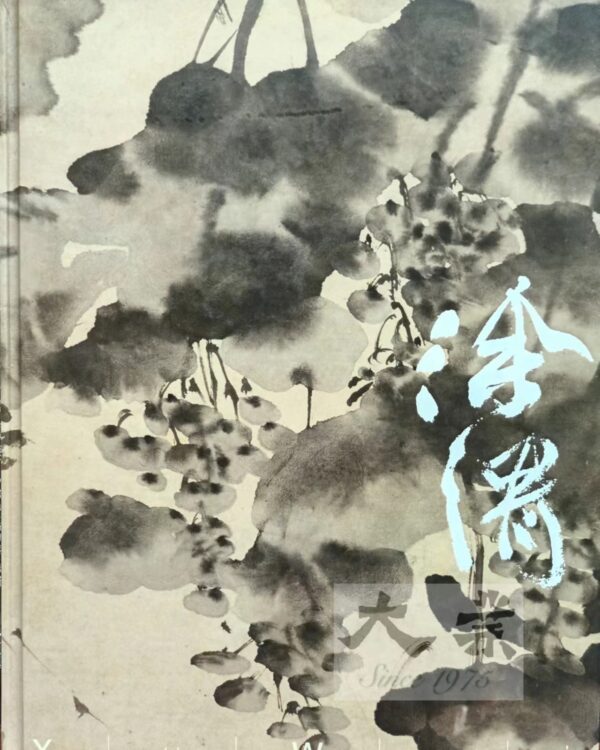 徐渭
大業
Since 1975